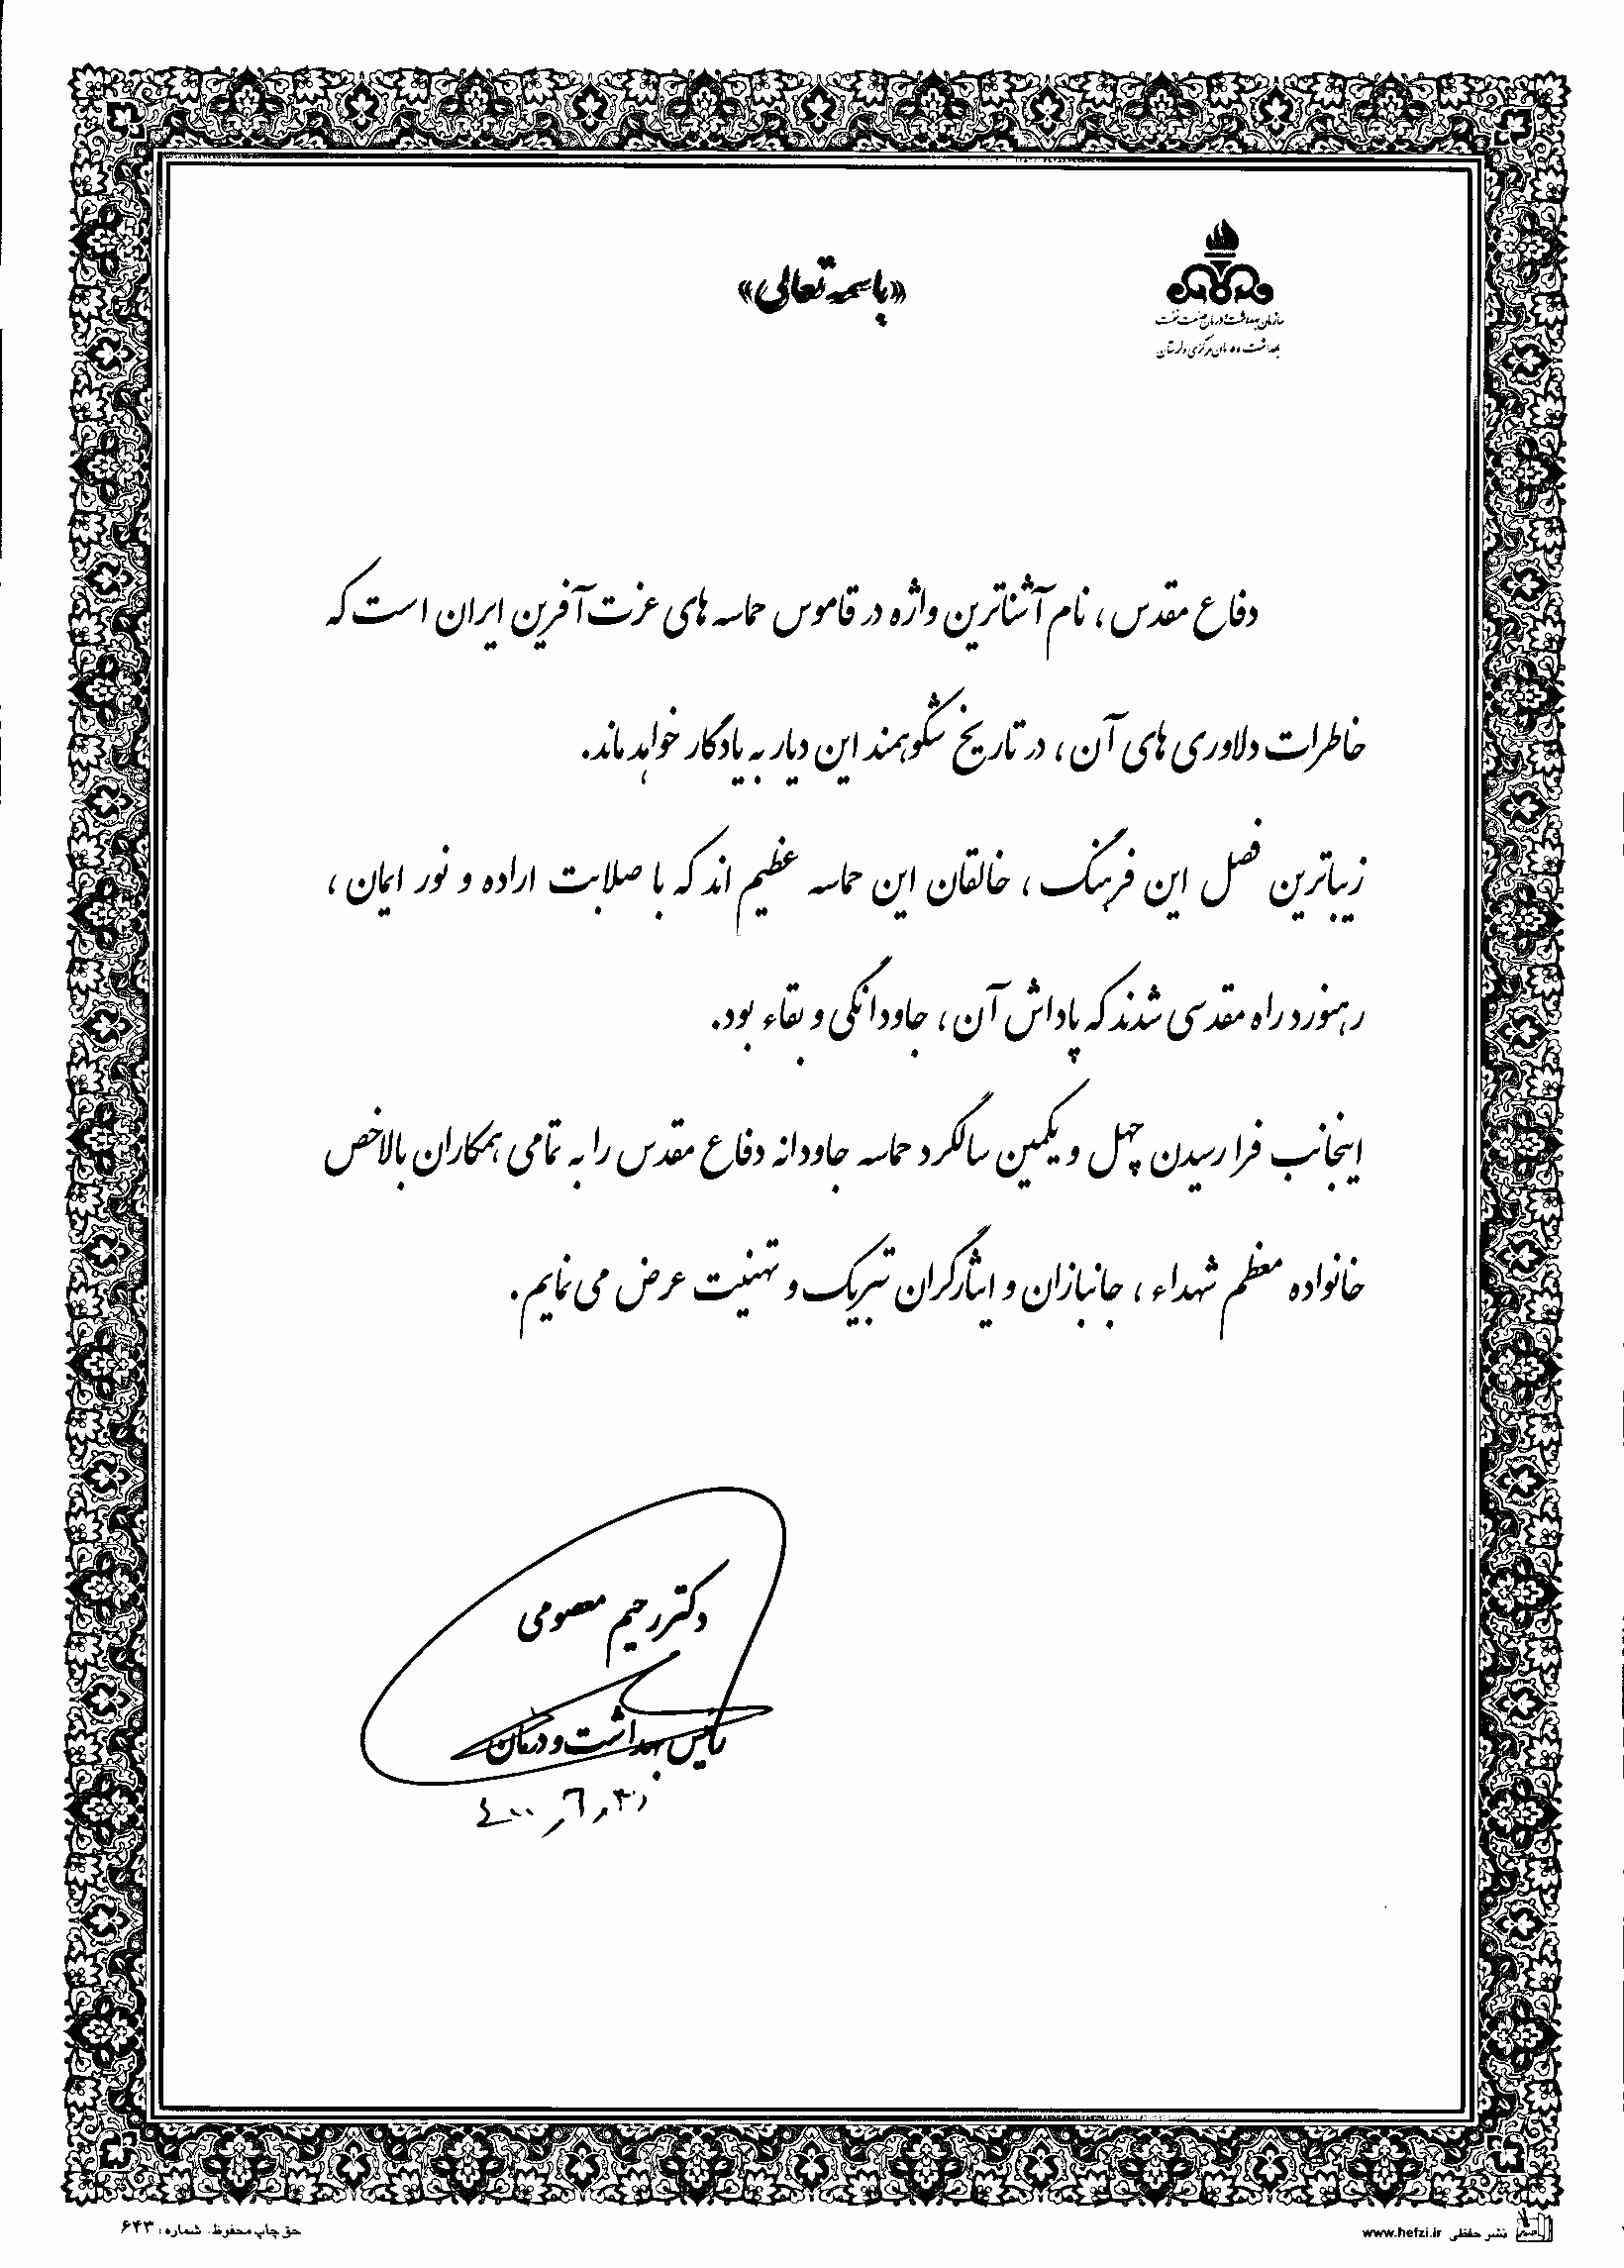 «باسمه تعالی»
سازمان بهداشت و درمان صنعت نفت
بهداشت و درمان مرکزی و لرستان
دفاع مقدس ، نام آشناترین واژه در قاموس حماسه های عزت آفرین ایران است که
خاطرات دلاوری های آن ، در تاریخ شکوهمند این دیار به یادگار خواهد ماند.
زیباترین فصل این فرهنگ ، خالقان این حماسه عظیم اند که با صلابت اراده و نور ایمان ،
رهنورد راه مقدسی شدند که پاداش آن ، جاودانگی و بقاء بود.
اینجانب فرا رسیدن چهل و یکمین سالگرد حماسه جاودانه دفاع مقدس را به تمامی همکاران بالاخص
خانواده معظم شهداء ، جانبازان و ایثارگران تبریک و تهنیت عرض می نمایم.
دکتر رحیم معصومی
رئیس بهداشت و درمان
۴۰۰٫۶٫۳۰
نشر حفظی www.hefzi.ir
حق چاپ محفوظ. شماره: ۶۴۳